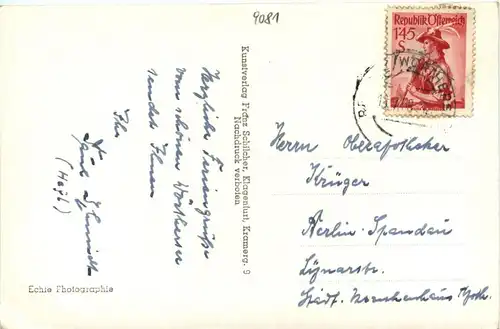 9081
Republik Österreich
1'45
S
Herzliche Feriengrüße
vom schönen Wörthersee
sendet Ihnen
Ihr
Schmidt
Kunstverlag Franz Schilcher, Klagenfurt, Kramerg. 9
Nachdruck verboten
Herrn Oberapotheker
Krüger
Berlin-Spandau
Lynarstr.
Städt. Krankenhaus Apoth.
Echte Photographie